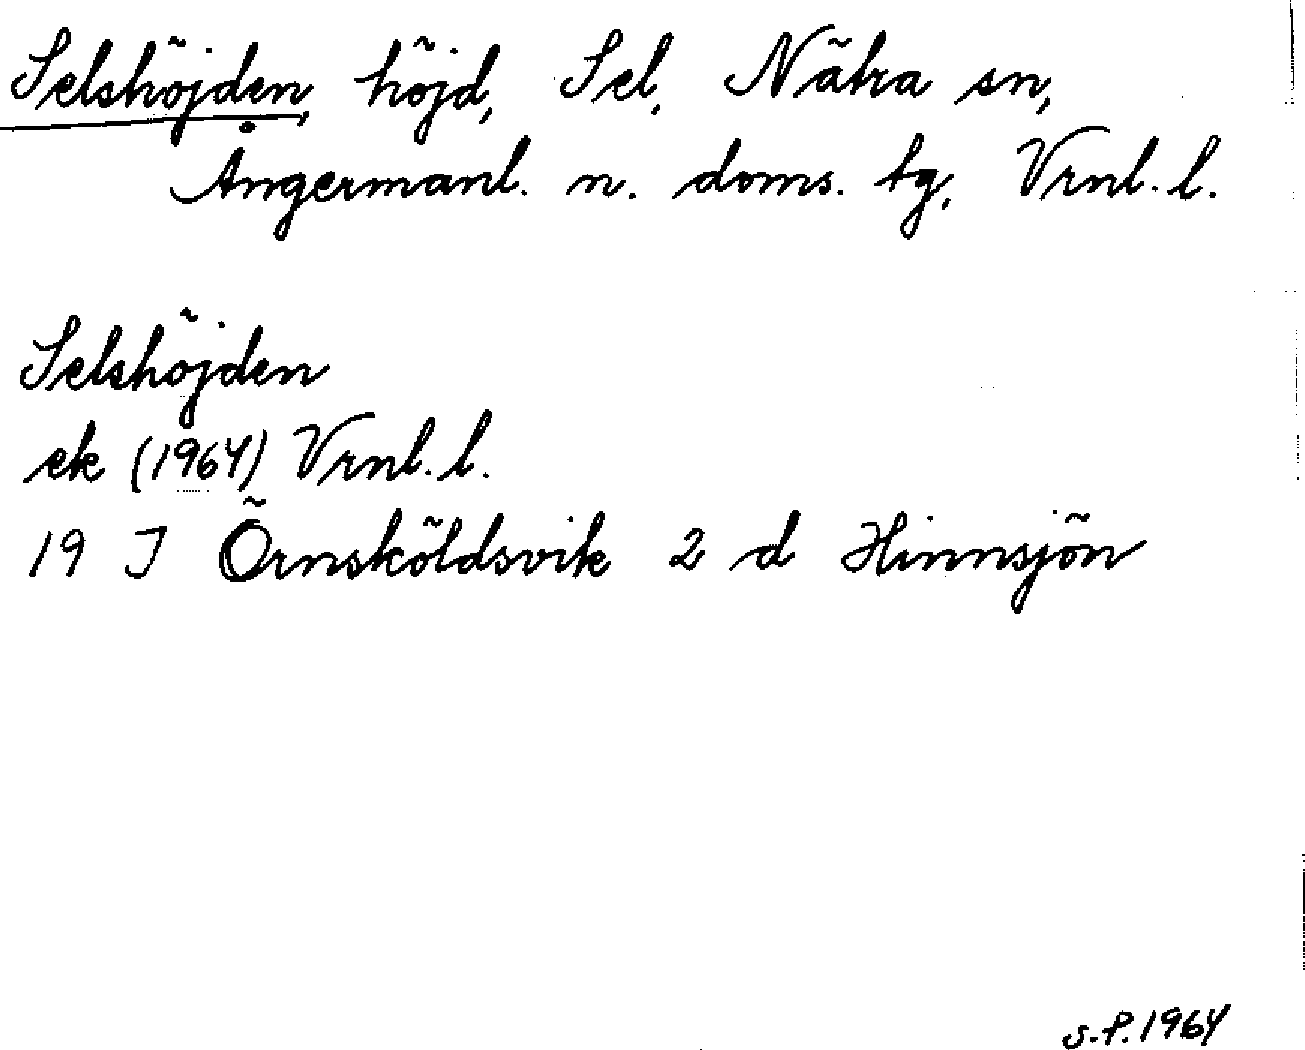 Selshöjden, höjd, Sel, Nätra sn,
Ångermanl. n. doms. tg, Vrnl. l.
Selshöjden
ek (1964) Vrnl. l.
19 J Örnsköldsvik 2 d Hinnsjön
S.P. 1964